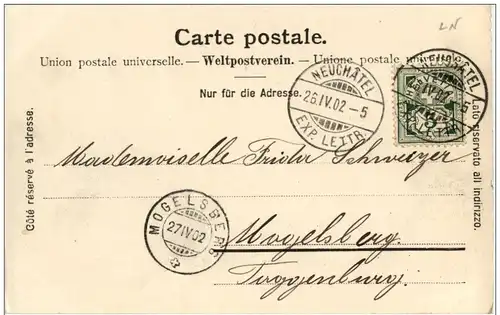 LN
Carte postale.
Union postale universelle. — Weltpostverein. — Unione postale universale.
Nur für die Adresse.
NEUCHÂTEL
26.IV.02-5
EXP. LETTR.
NEUCHÂTEL
26.IV.02
5
Côté réservé à l'adresse.
Lato riservato all indirizzo.
Mademoiselle Frida Schweizer
MOGELSBERG
27.IV.02
Mogelsberg.
Toggenburg.